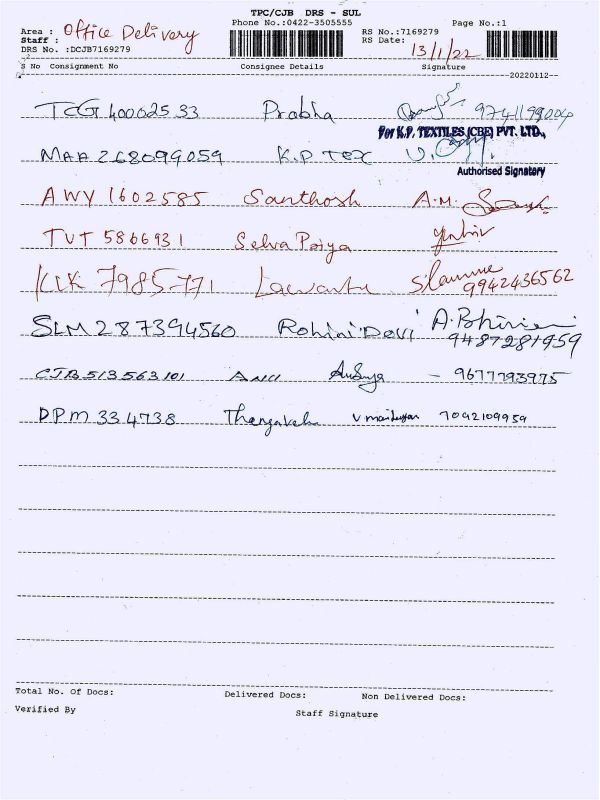 TPC/CJB DRS - SUL
Phone No.:0422-3505555
Page No.:1
Area : Office Delivery
Staff :
DRS No. :DCJB7169279
RS No.:7169279
RS Date: 13/1/22
S No Consignment No Consignee Details Signature
20220112
TCG 400025 33 Prabha 9741199004
For K.P. TEXTILES (CBE) PVT. LTD.,
MAA 268099059 K.P TEX
Authorised Signatory
AWY 1602585 Santhosh A.M.
TVT 5866931 Selva Priya
KLK 7985771 9942436562
SLM 287394560 Rohini Devi 9487281959
CJB513563101 Anu - 9677793975
DPM 334738 7092109959
Total No. Of Docs: Delivered Docs: Non Delivered Docs:
Verified By Staff Signature